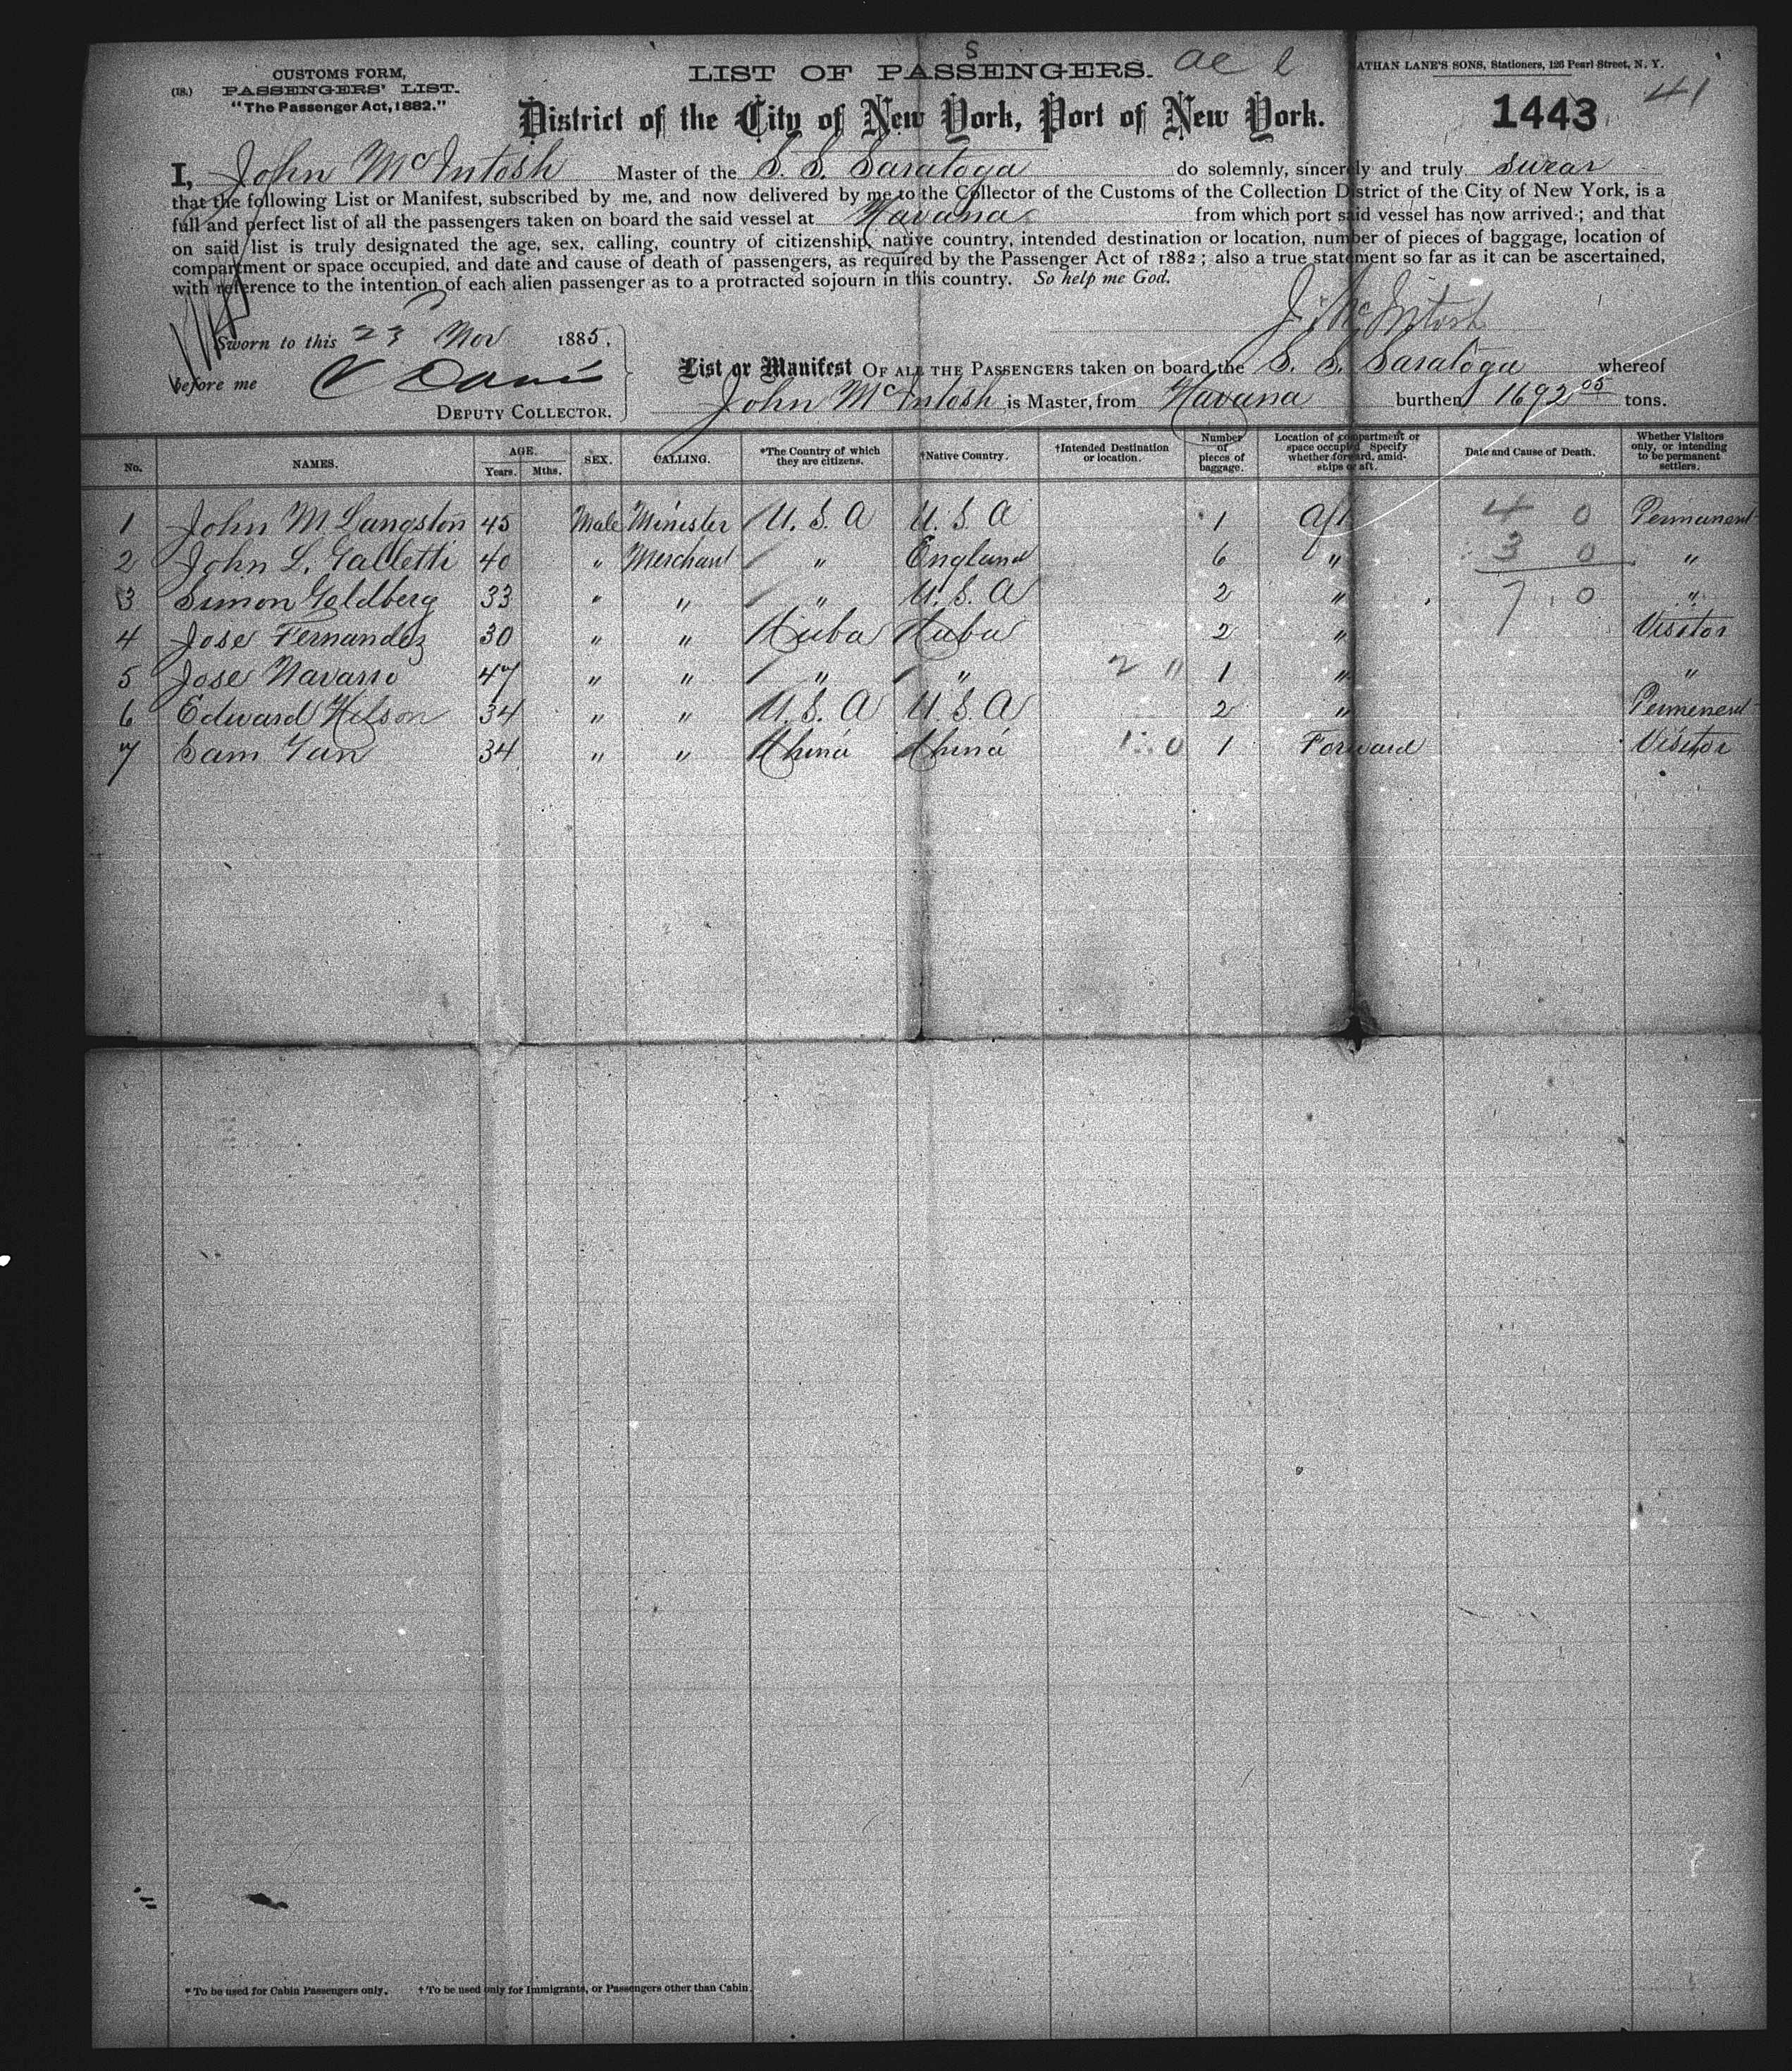 CUSTOMS FORM,
(18.) PASSENGERS' LIST.
"The Passenger Act, 1882."
S
LIST OF PASSENGERS.
NATHAN LANE'S SONS, Stationers, 126 Pearl Street, N. Y.
District of the City of New York, Port of New York.
1443
41
I, John McIntosh Master of the S. S. Saratoga do solemnly, sincerely and truly swear
that the following List or Manifest, subscribed by me, and now delivered by me to the Collector of the Customs of the Collection District of the City of New York, is a
full and perfect list of all the passengers taken on board the said vessel at Havana from which port said vessel has now arrived; and that
on said list is truly designated the age, sex, calling, country of citizenship, native country, intended destination or location, number of pieces of baggage, location of
compartment or space occupied, and date and cause of death of passengers, as required by the Passenger Act of 1882; also a true statement so far as it can be ascertained,
with reference to the intention of each alien passenger as to a protracted sojourn in this country. So help me God.
J. McIntosh
Sworn to this 23 Nov 1885,
before me Davis
DEPUTY COLLECTOR.
List or Manifest OF ALL THE PASSENGERS taken on board the S. S. Saratoga whereof
John McIntosh is Master, from Havana burthen 1692 05 tons.
No. NAMES. AGE. Years. Mths. SEX. CALLING. *The Country of which they are citizens. †Native Country. †Intended Destination or location. Number of pieces of baggage. Location of compartment or space occupied. Specify whether forward, amidships or aft. Date and Cause of Death. Whether Visitors only, or intending to be permanent settlers.
1 John M. Langston 45 Male Minister U. S. A U. S. A 1 Aft 4 0 Permanent
2 John L. Galletti 40 " Merchant " England 6 " 3 0 "
3 Simon Goldberg 33 " " " U. S. A 2 " 7 0 "
4 Jose Fernandez 30 " " Kuba Kuba 2 " Visitor
5 Jose Navarro 47 " " " " 2 0 1 " "
6 Edward Wilson 34 " " U. S. A U. S. A 2 " Permenent
7 Sam Yan 34 " " China China 1 0 1 Forward Visitor
* To be used for Cabin Passengers only. † To be used only for Immigrants, or Passengers other than Cabin.